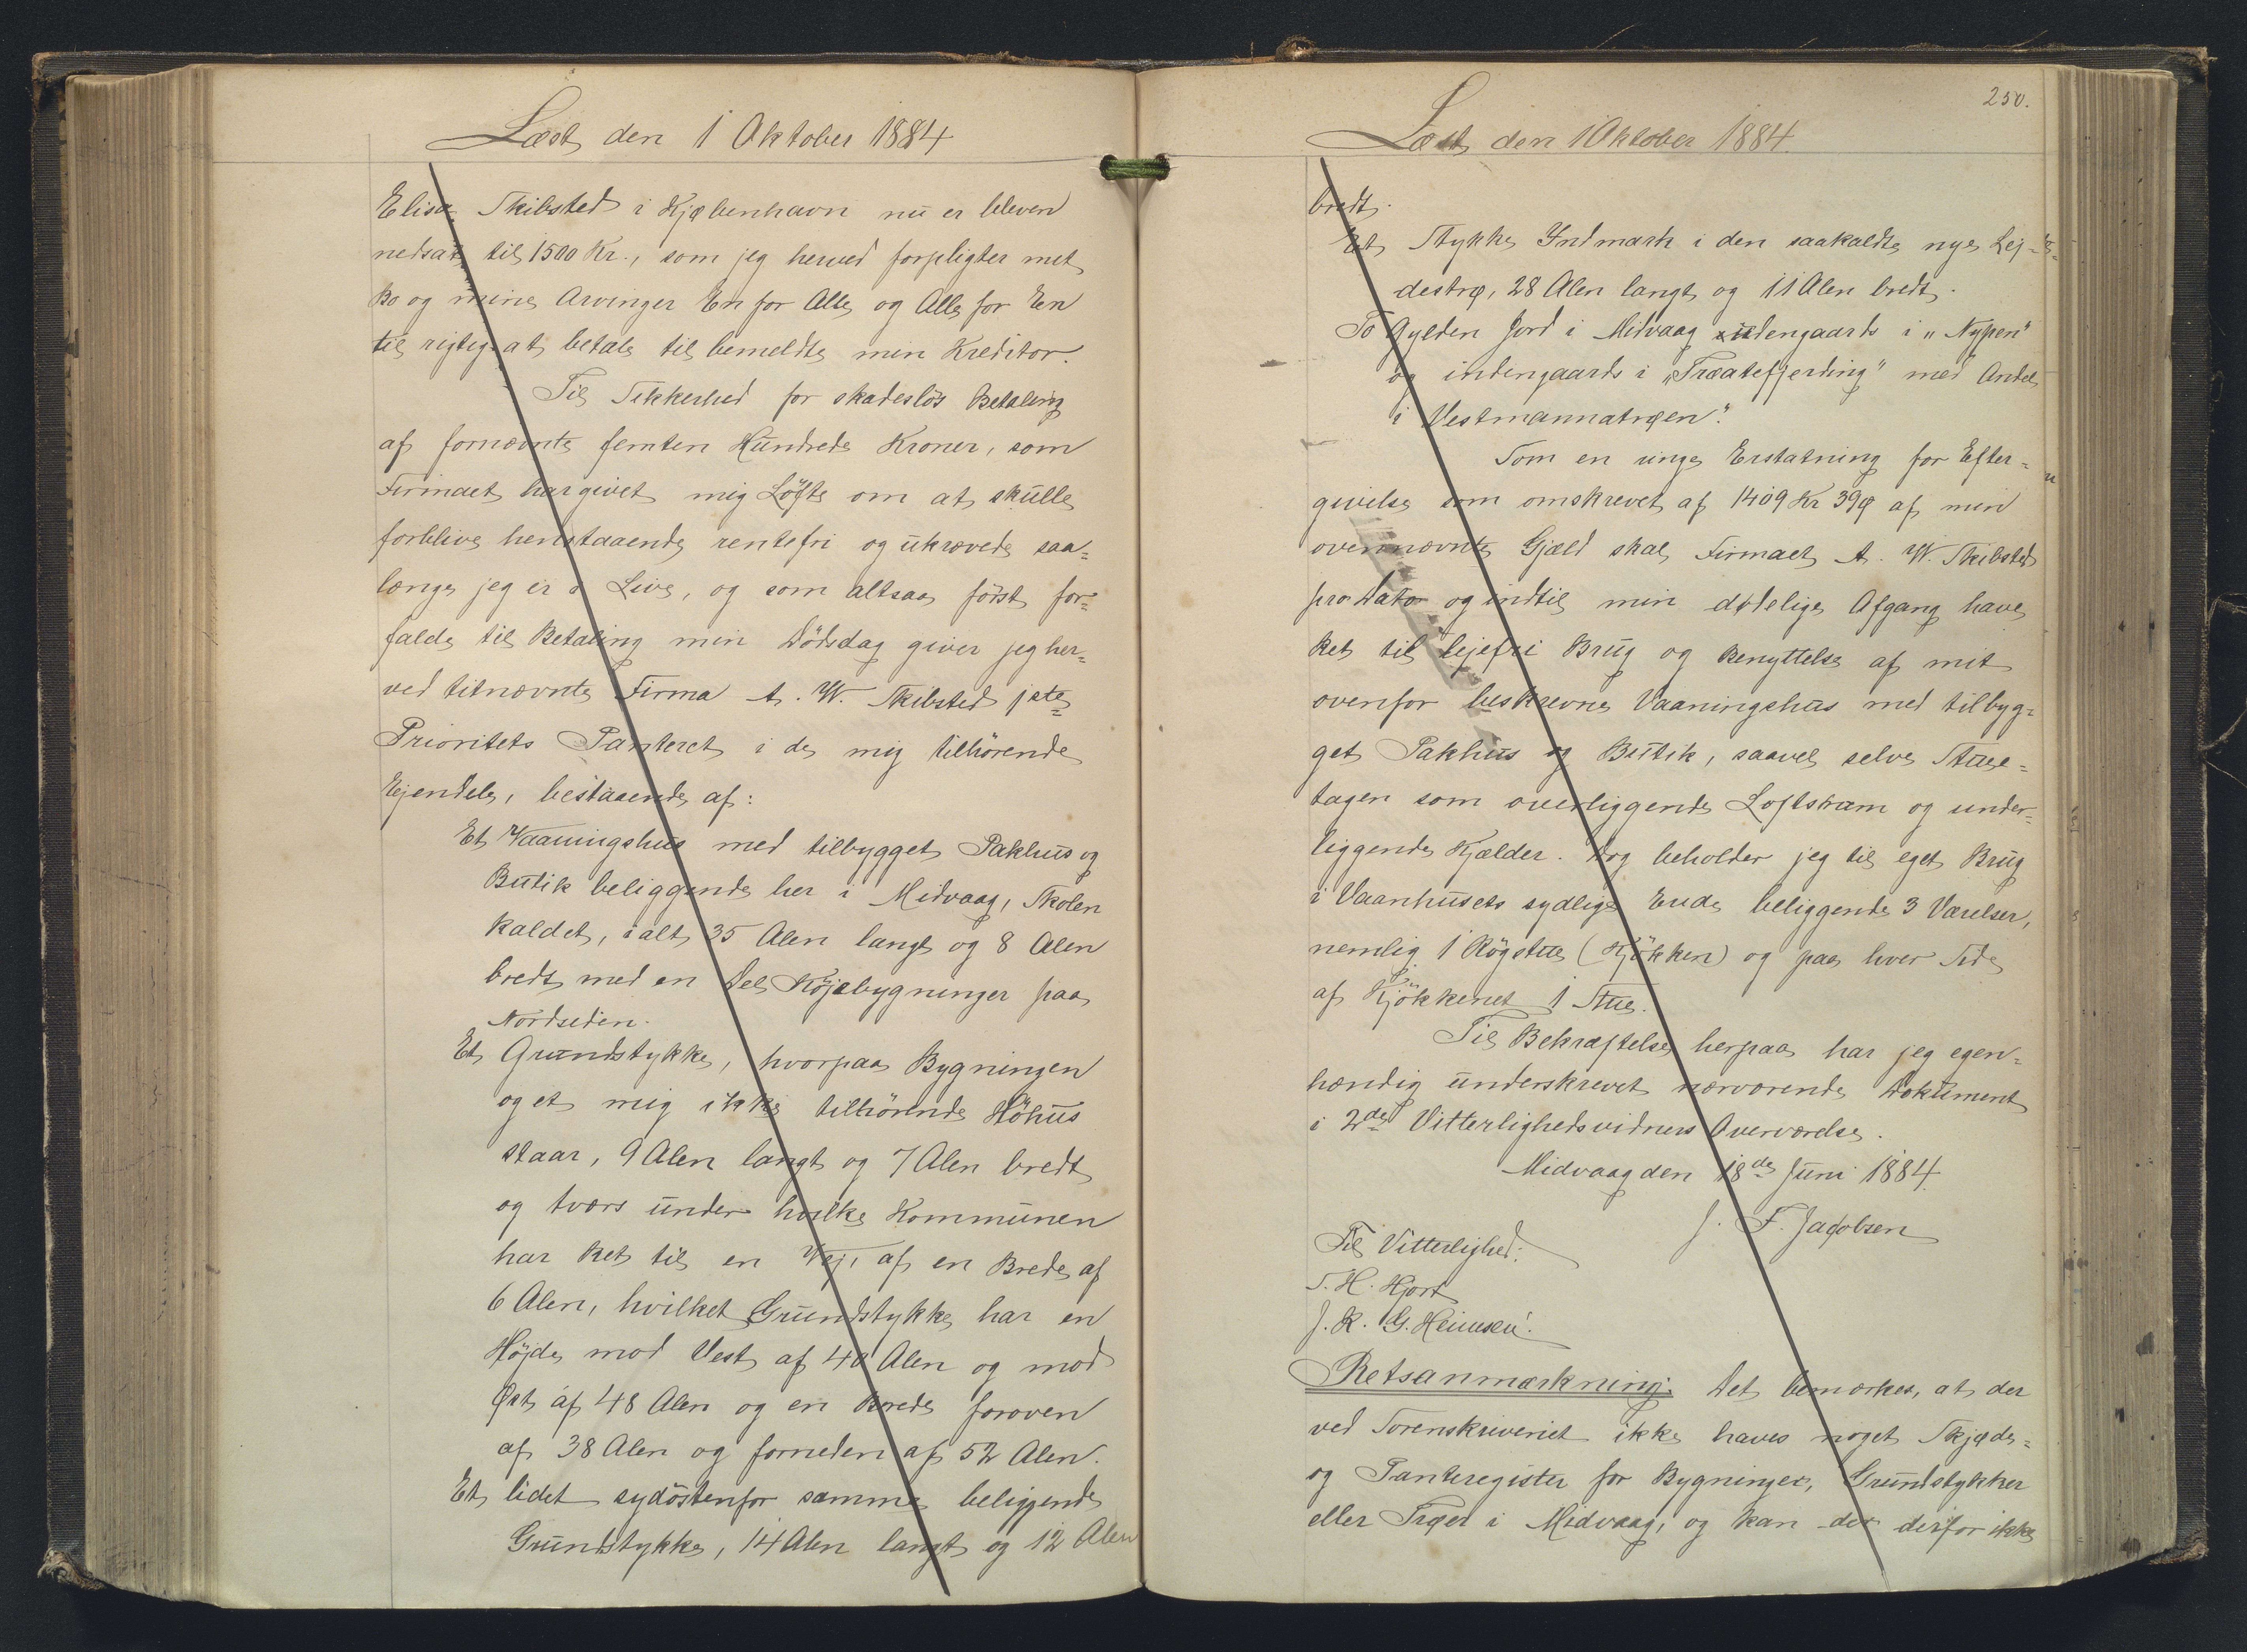 Læst den 1 Oktober 1884
Elisa Skibsted i Kjøbenhavn nu er bleven
nedsat til 1500 Kr., som jeg herved forpligter mit
Bo og mine Arvinger En for Alle og Alle for En
til rigtig at betale til bemeldte min Kreditor.
Til Sikkerhed for skadesløs Betaling
af fornævnte femten Hundrede Kroner, som
Firmaet har givet mig Løfte om at skulle
forblive henstaaende rentefri og ukrævede saa=
længe jeg er i Live, og som altsaa først for=
falde til Betaling min Dødsdag giver jeg her=
ved titnævnte Firma A. W. Skibsted 1ste
Prioritets Panteret i de mig tilhørende
Ejendele, bestaaende af:
Et Vaaningshus med tilbygget Pakhus og
Butik beliggende her i Midvaag, Skolen
kaldet, ialt 25 Alen langt og 8 Alen
bredt med en Del Køjebygninger paa
Nordsiden.
Et Grundstykke, hvorpaa Bygningen
og et mig ikke tilhørende Høhus
staar, 9 Alen langt og 7 Alen bredt
og tvers under hvilke Kommunen
har Ret til en Vej, af en Brede af
6 Alen, hvilket Grundstykke har en
Højde mod Vest af 40 Alen og mod
Øst af 48 Alen og en Brede foroven
af 38 Alen og forneden af 52 Alen.
Et lidet sydøstenfor samme beliggende
Grundstykke, 14 Alen langt og 12 Alen
250.
Læst den 1 Oktober 1884.
bredt.
Et Stykke Indmark i den saakaldte nye Lej=
destrø, 28 Alen langt og 11 Alen bredt.
To Gylden Jord i Midvaag udengaards i "Nypen"
og indengaards i "Træatefjerding" med Andel
i Vestmannatrøen".
Som en ringe Erstatning for Efter=
givelse som omskrevet af 1409 Kr 39 ø af min
ovennævnte Gjæld skal Firmaet A. W. Skibsted
pro Dato og indtil min dødelige Afgang have
Ret til lejefri Brug og Benyttelse af mit
ovenfor beskrevne Vaaningshus med tilbyg=
get Pakhus og Butik, saavel selve Stue=
tagen som overliggende Loftsram og under=
liggende Kjælder. Dog beholder jeg til eget Brug
i Vaanhusets sydlige Ende beliggende 3 Værelser,
nemlig 1 Røgstue (Kjøkken) og paa hver Side
af Kjøkkenet 1 Stue.
Til Bekræftelse herpaa har jeg egen=
hændig underskrevet nærværende Dokument
i 2de Vitterlighedsvidners Overværelse.
Midvaag den 18de Juni 1884.
J. F. Jacobsen
Til Vitterlighed:
S. H. Hjort
J. K. G. Heinesen.
Retsanmærkning: Det bemærkes, at der
ved Sorenskriveriet ikke haves noget Skjøde=
og Panteregister for Bygninger, Grundstykker
eller Trøer i Midvaag, og kan der derfor ikke